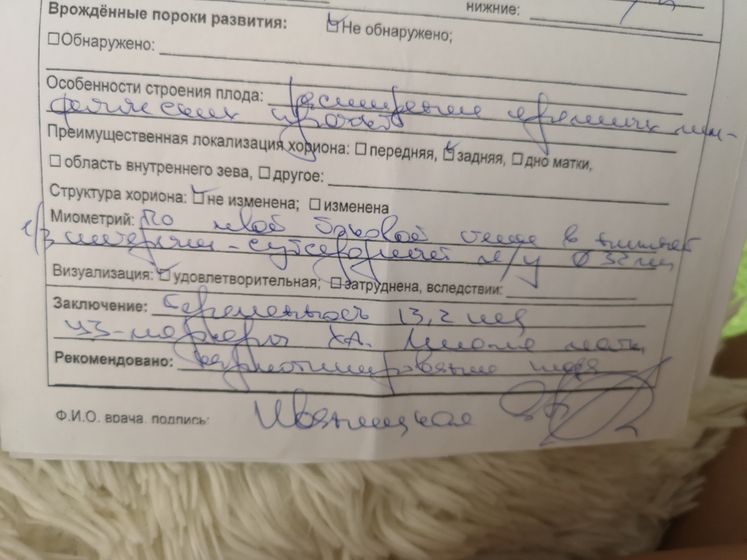 нижние:
Врождённые пороки развития: Не обнаружено;
Обнаружено:
Особенности строения плода: расширение яремных лим-
фатических протоков
Преимущественная локализация хориона: передняя, задняя, дно матки,
область внутреннего зева, другое:
Структура хориона: не изменена; изменена
Миометрий: по левой боковой стенке в нижней
с/з интерстиц-субсерозный м/у ⌀ 32 мм
Визуализация: удовлетворительная; затруднена, вследствии:
Заключение: Беременность 13,2 нед
УЗ-маркеры ХА. Миома матки
Рекомендовано: кариотипирование плода
Ф.И.О. врача, подпись: Иваницкая